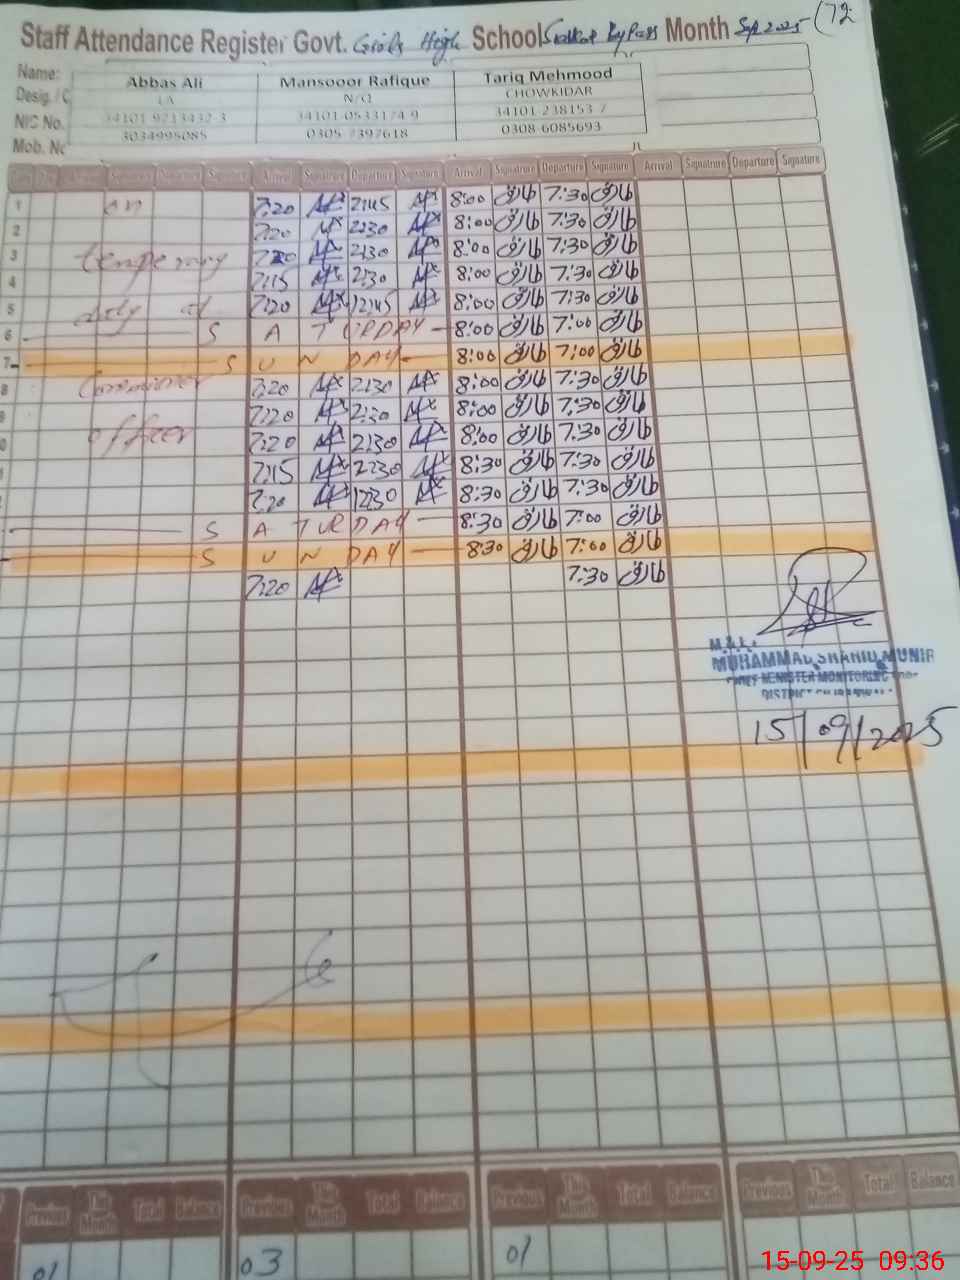 Staff Attendance Register Govt. Girls High School Sialkot By Pass Month Sep 2025 (72
Name: Abbas Ali Mansooor Rafique Tariq Mehmood
Desig. / C LA N/Q CHOWKIDAR
NIC No. 34101-9713432-3 34101-0533174-9 34101-238153-7
Mob. No 3034995085 0305-7397618 0308-6085693
Arrival Signatrure Departure Signature Arrival Signatrure Departure Signature Arrival Signatrure Departure Signature
1 on 7:20 2:45 8:00 طارق 7:30 طارق
2 7:20 2:30 8:00 طارق 7:30 طارق
3 temperary 7:20 2:30 8:00 طارق 7:30 طارق
4 7:15 2:30 8:00 طارق 7:30 طارق
5 duty at 7:20 12:45 8:00 طارق 7:30 طارق
6 SATURDAY 8:00 طارق 7:00 طارق
7 SUNDAY 8:00 طارق 7:00 طارق
8 7:20 2:30 8:00 طارق 7:30 طارق
9 7:20 2:30 8:00 طارق 7:30 طارق
0 officer 7:20 2:30 8:00 طارق 7:30 طارق
7:15 2:30 8:30 طارق 7:30 طارق
7:20 12:30 8:30 طارق 7:30 طارق
SATURDAY 8:30 طارق 7:00 طارق
SUNDAY 8:30 طارق 7:00 طارق
7:20 7:30 طارق
MUHAMMAD SHAHID MUNIR
CHIEF MINISTER MONITORING
DISTRICT
15/09/2025
Previous This Month Total Balance Previous This Month Total Balance Previous This Month Total Balance Previous This Month Total Balance
01 03 01
15-09-25 09:36